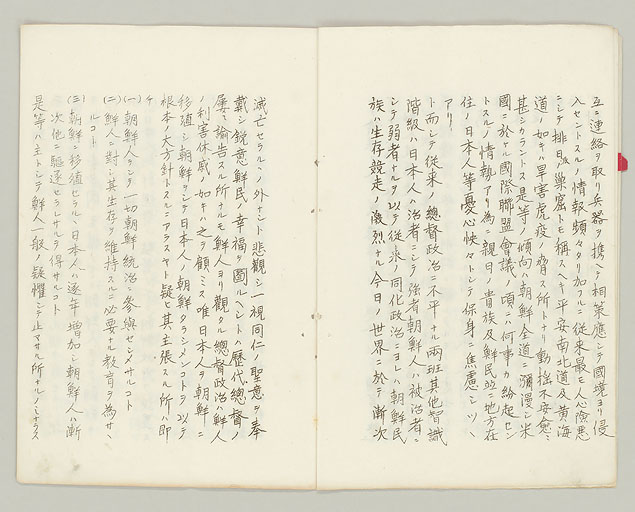 互ニ連絡ヲ取リ兵器ヲ携ヘテ相策應シテ國境ヨリ侵
入セントスルノ情報頻々タリ加フルニ従来最モ人心險悪
ニシテ排日ノ巣窟トモ稱スヘキ平安南北道及黄海
道ノ如キハ旱害虎疫ノ脅ス所トナリ動揺不安愈々
甚シカラントス是等ノ傾向ハ朝鮮全道ニ瀰漫シ米
國ニ於ケル國際聯盟會議ノ頃ニハ何事カ紛起セン
トスルノ情勢アリ為ニ親日ノ貴族及鮮民並ニ地方在
住ノ日本人等憂心怏々トシテ保身ニ焦慮シツヽ
アリ
ト而シテ従来ノ總督政治ニ不平ナル両班其他智識
階級ハ日本人ハ治者ニシテ強者朝鮮人ハ被治者ニ
シテ弱者ナルヲ以テ従来ノ同化政治ニヨレハ朝鮮民
族ハ生存競走ノ激烈ナル今日ノ世界ニ於テ漸次
滅亡セラルヽノ外ナシト悲觀シ一視同仁ノ聖意ヲ奉
戴シ鋭意鮮民ノ幸福ヲ圖ルヘシトハ歴代總督ノ
屡々諭告スル所ナルモ鮮人ヨリ觀タル總督政治ハ鮮人
ノ利害休戚ノ如キハ之ヲ顧ミス唯日本人ヲ朝鮮ニ
移殖シ朝鮮ヲシテ日本人ノ朝鮮タラシメンコトヲ以テ
根本ノ大方針トスルニアラスヤト疑ヒ其主張スル所ハ即
チ
(一)朝鮮人ヲシテ一切朝鮮統治ニ參與セシメサルコト
(二)鮮人ニ對シ其生存ヲ維持スルニ必要ナル教育ヲ為サヽ
ルコト
(三)朝鮮ニ移殖セラルヽ日本人ハ逐年増加シ朝鮮人ハ漸
次他ニ驅逐セラレサルヲ得サルコト
是等ハ主トシテ鮮人一般ノ疑懼シテ止マサル所ナルノミナラス